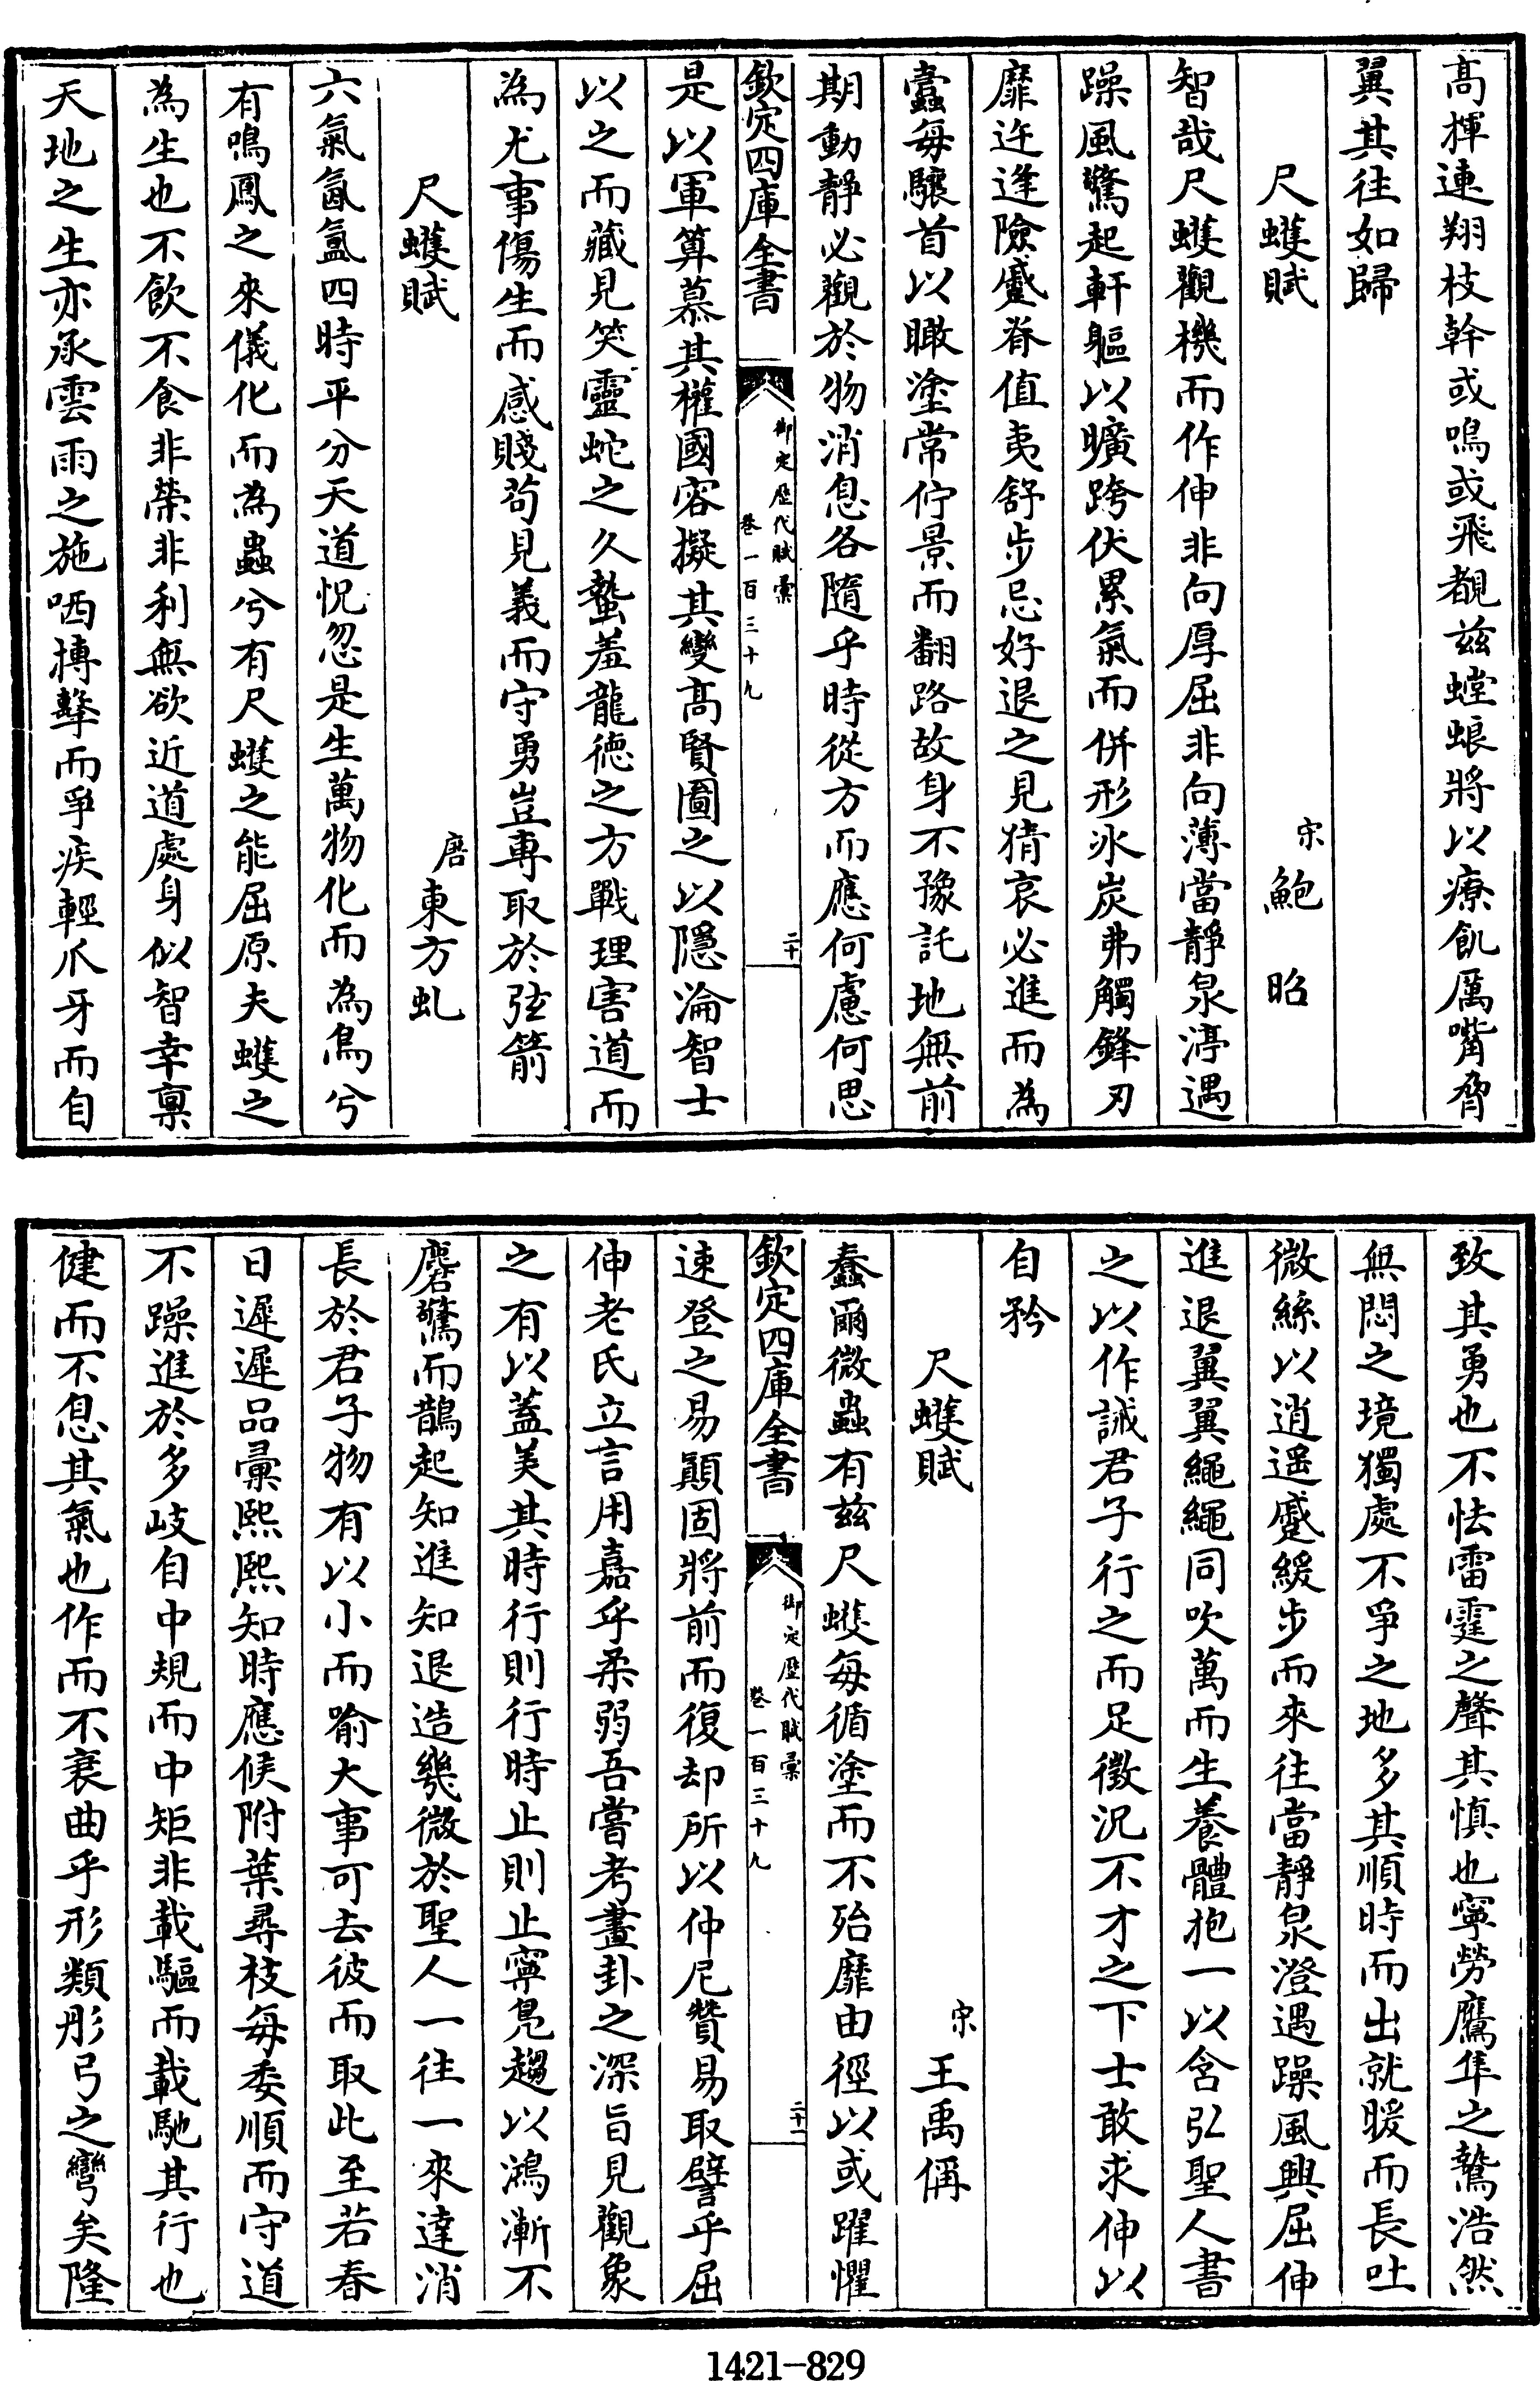 高揮連翔枝幹或鳴或飛覩兹螳蜋將以療飢厲嘴脅
翼其往如歸
尺蠖賦　宋鮑　昭
智哉尺蠖觀機而作伸非向厚屈非向薄當靜泉渟遇
躁風驚起軒軀以曠跨伏累氣而併形氷炭弗觸鋒刃
靡迕逢險蹙脊值夷舒步忌好退之見猜哀必進而為
蠹每驤首以瞰塗常佇景而翻路故身不豫託地無前
期動靜必觀於物消息各隨乎時從方而應何慮何思
欽定四庫全書　御定歷代賦彙　卷一百三十九　二十
是以軍算慕其權國容擬其變高賢圖之以隱淪智士
以之而藏見笑靈蛇之久蟄羞龍徳之方戰理害道而
為尤事傷生而感賤茍見義而守勇豈專取於弦箭
尺蠖賦　唐東方虬
六氣氤氲四時平分天道怳忽是生萬物化而為鳥兮
有鳴鳳之來儀化而為蟲兮有尺蠖之能屈原夫蠖之
為生也不飲不食非榮非利無欲近道處身似智幸稟
天地之生亦承雲雨之施哂搏擊而爭疾輕爪牙而自
致其勇也不怯雷霆之聲其慎也寧勞鷹隼之鷙浩然
無悶之境獨處不爭之地多其順時而出就暖而長吐
微絲以逍遥蹙緩步而來往當靜泉澄遇躁風興屈伸
進退翼翼繩繩同吹萬而生養體抱一以含弘聖人書
之以作誡君子行之而足徵況不才之下士敢求伸以
自矜
尺蠖賦　宋王禹偁
蠢爾微蟲有兹尺蠖每循塗而不殆靡由徑以或躍懼
欽定四庫全書　御定歷代賦彙　卷一百三十九　二十一
速登之易顛固將前而復却所以仲尼贊易取譬乎屈
伸老氏立言用嘉乎柔弱吾嘗考畫卦之深旨見觀象
之有以蓋美其時行則行時止則止寧鳧趨以鴻漸不
麏驚而鵲起知進知退造幾微於聖人一往一來達消
長於君子物有以小而喻大事可去彼而取此至若春
日遲遲品彙熙熙知時應候附葉尋枝每委順而守道
不躁進於多岐自中規而中矩非載驅而載馳其行也
健而不息其氣也作而不衰曲乎形類彤弓之彎矣隆
1421-829